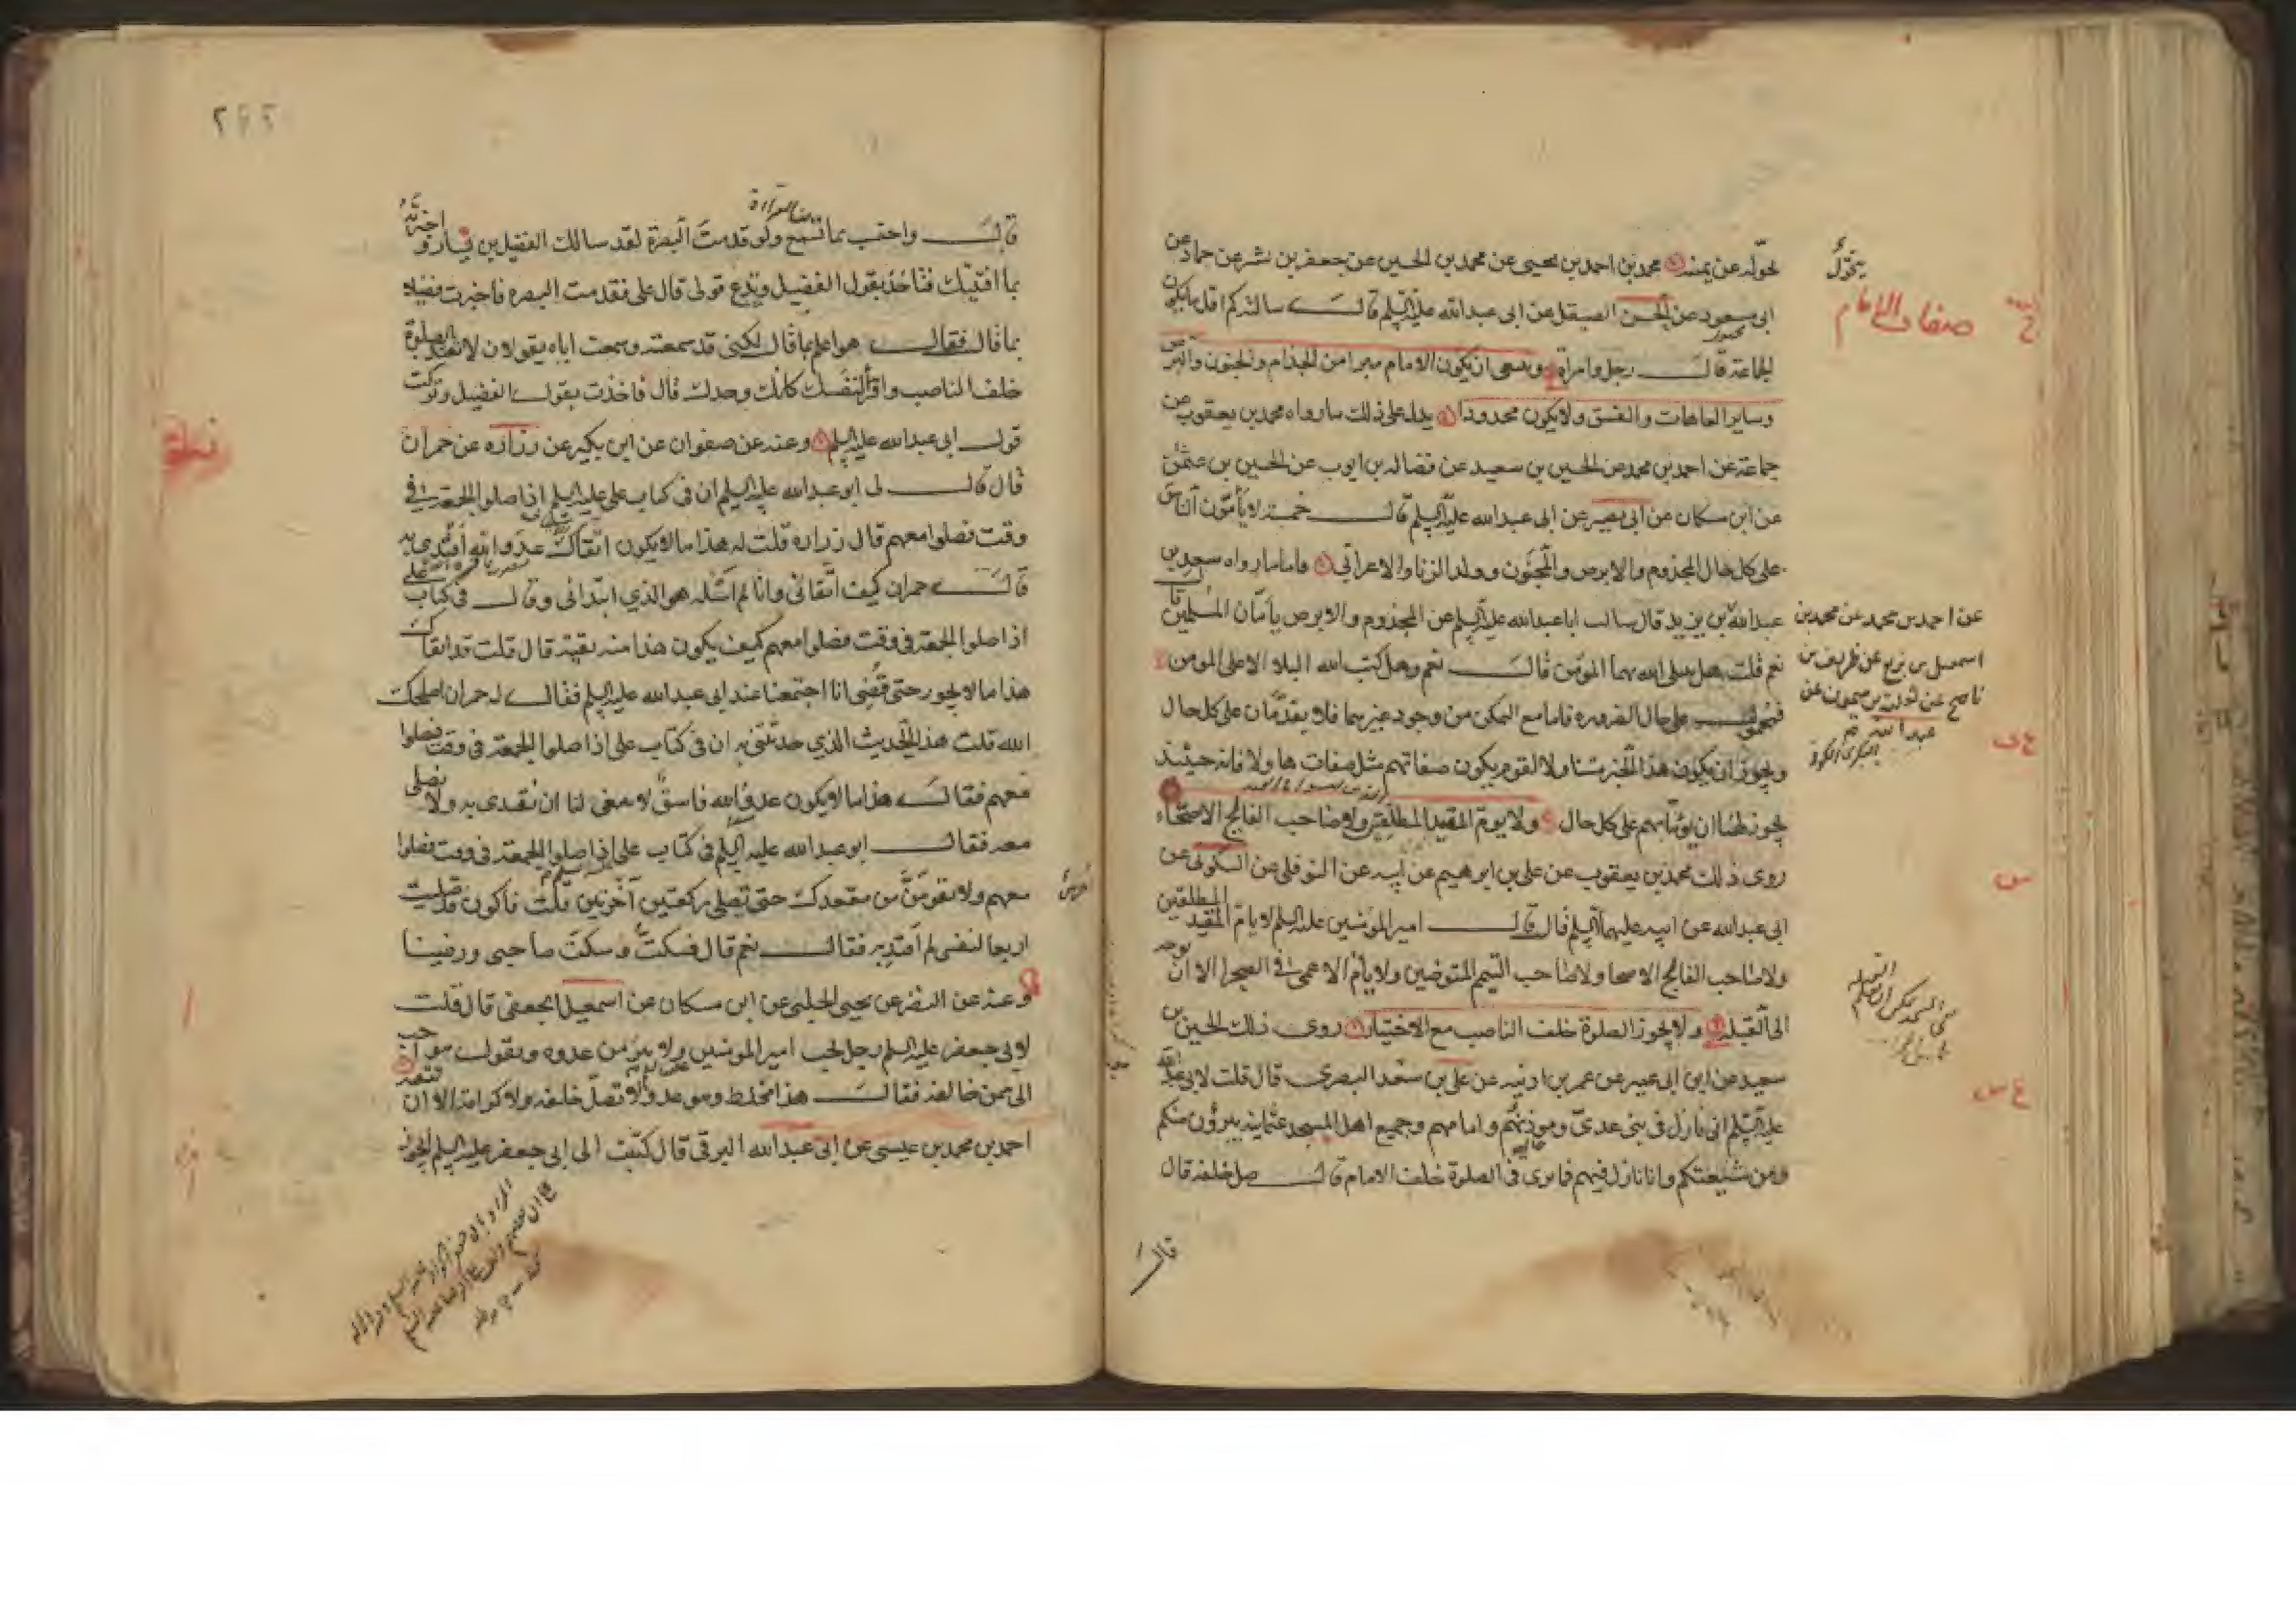 يحوله عن يمينه محمد بن احمد بن يحيى عن محمد بن الحسين عن جعفر بن بشر عن حماد عن
ابى مسعود عن الحسن الصيقل عن ابى عبدالله عليه السلم قال سالته كم اقل ما يكون
الجماعة قال رجل وامراة وينبغى ان يكون الامام مبرا من الجذام والجنون والبرص
وساير العاهات والفسق ولا يكون محدودا يدل على ذلك ما رواه محمد بن يعقوب عن
جماعة عن احمد بن محمد عن الحسين بن سعيد عن فضالة بن ايوب عن الحسين بن عثمن
عن ابن مسكان عن ابى بصير عن ابى عبدالله عليه السلم قال خمسة لا يأمّون الناس
على كل حال المجذوم والابرص والمجنون وولد الزنا والاعرابى فاما ما رواه سعد بن
عبدالله بن يزيد قال سالت ابا عبدالله عليه السلم عن المجذوم والابرص يأمّان المسلمين قال
نعم قلت هل يبتلى الله بهما المؤمن قال نعم وهل كتب الله البلاء الا على المؤمن
فمحمول على حال الضرورة فاما مع التمكن من وجود غيرهما فلا يقدمان على كل حال
ويجوز ان يكون هذا الخبر متناولا لقوم يكون صفاتهم مثل صفاتهما ولا فانه حينئذ
يجوز لهما ان يؤمّا بهم على كل حال ولا يوم المقيد المطلقين ولا صاحب الفالج الاصحاء
روى ذلك محمد بن يعقوب عن على بن ابرهيم عن ابيه عن النوفلى عن السكونى عن
ابى عبدالله عن ابيه عليهما السلم قال قال امير المؤمنين عليه السلم لا يام المقيد المطلقين
ولا صاحب الفالج الاصحا ولا صاحب التيمم المتوضين ولا يام الاعمى فى الصحرا الا ان يوجه
الى القبلة ولا يجوز الصلوة خلف الناصب مع الاختيار روى ذلك الحسين بن
سعيد عن ابن ابى عمير عن عمر بن اذينه عن على بن سعد البصرى قال قلت لابى عبدالله
عليه السلم انى نازل فى بنى عدى ومؤذنهم وامامهم وجميع اهل المسجد عثمانية يبرؤن منكم
ومن شيعتكم وانا نازل فيهم فما ترى فى الصلوة خلف الامام قال صل خلفه قال
قال
يحوّل
صفات الامام
عن احمد بن محمد عن محمد بن
اسمعيل بن بزيع عن ظريف بن
ناصح عن ثعلبة بن ميمون عن
عبدالله
قال واحتسب بما تسمع ولو قدمت البصرة لقد سالك الفضيل بن يسار واخبرته
بما افتيتك فتاخذ بقول الفضيل وتدع قولى قال على فقدمت البصره فاخبرت فضيلا
بما قال فقال هو اعلم بما قال لكنى قد سمعته وسمعت اباه يقولان لا تعتد بالصلوة
خلف الناصب واقرأ لنفسك كانك وحدك قال فاخذت بقول الفضيل وتركت
قول ابى عبدالله عليه السلم وعنه عن صفوان عن ابن بكير عن زراره عن حمران
قال قال لى ابو عبدالله عليه السلم ان فى كتاب على عليه السلم اذا صلوا الجمعة فى
وقت فصلوا معهم قال زرارة قلت له هذا ما لا يكون اتقاك عدو الله اقتدى به
قال حمران كيف اتقانى وانا لم اسئله هو الذي ابتدانى وقال فى كتاب على
اذا صلوا الجمعة فى وقت فصلوا معهم كيف يكون هذا منه تقية قال قلت قد اتقاك
هذا ما لا يجوز حتى قضى انا اجتمعنا عند ابى عبدالله عليه السلم فقال له حمران اصلحك
الله قلت هذا الحديث الذي حدثتنى به ان فى كتاب على اذا صلوا الجمعة فى وقت فصلوا
معهم فقال هذا ما لا يكون عدو الله فاسق لا ينبغى لنا ان نقتدى به ولا نصلى
معه فقال ابو عبدالله عليه السلم فى كتاب على اذا صلوا الجمعة فى وقت فصلوا
معهم ولا تقومن من مقعدك حتى تصلى ركعتين آخرتين قلت فاكون قد صليت
اربعا لنفسى لم اقتد به فقال نعم قال فسكت وسكت صاحبى ورضينا
وعنه عن النضر عن يحيى الحلبى عن ابن مسكان عن اسمعيل الجعفى قال قلت
لابى جعفر عليه السلم رجل يحب امير المؤمنين ولا يتبرؤ من عدوه ويقول هو احب
الى ممن خالفه فقال هذا مخلط وهو عدو لا تصل خلفه ولا كرامة الا ان تتقيه
احمد بن محمد بن عيسى عن ابى عبدالله البرقى قال كتبت الى ابى جعفر عليه السلم ايجوز